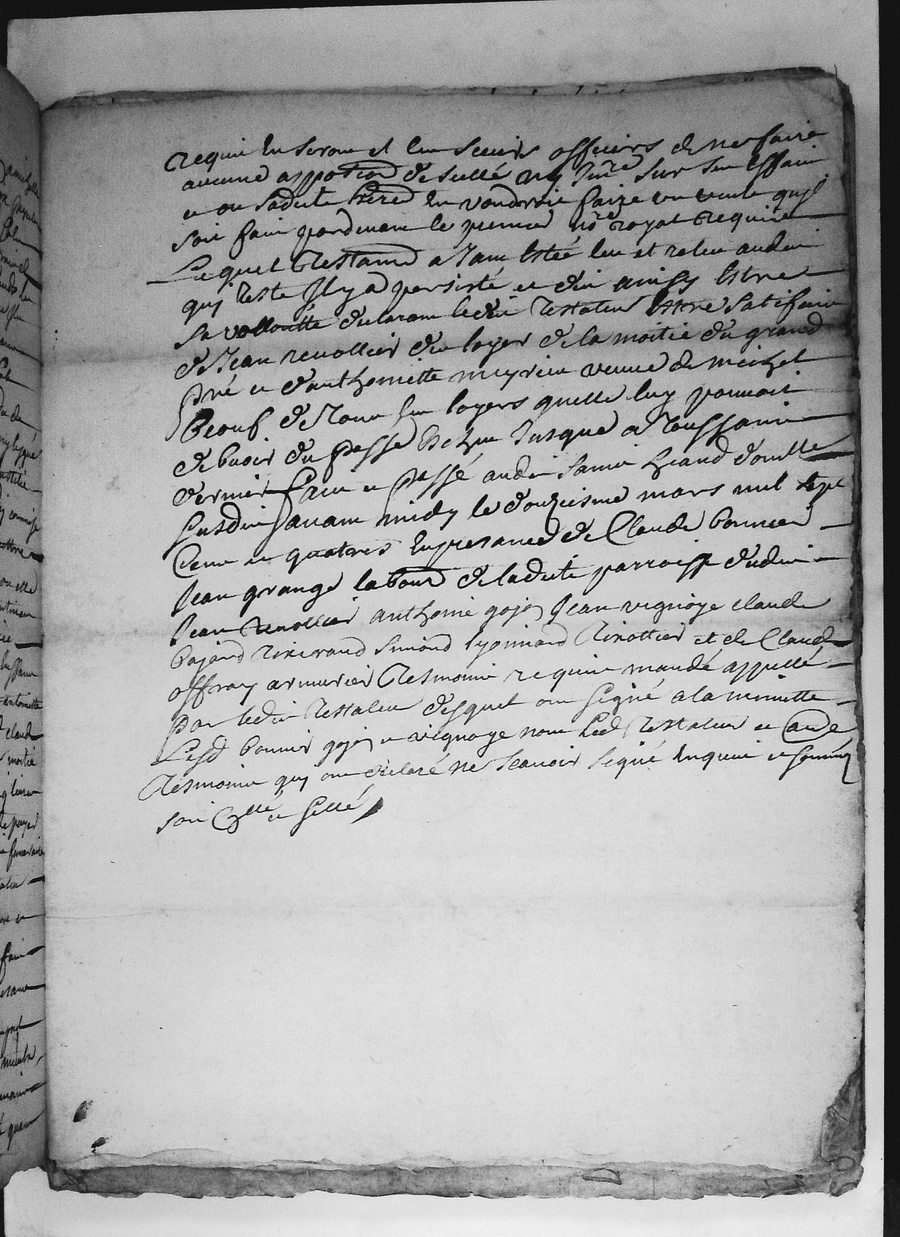 requier les seront et leurs sieurs officiers de ne faire
aucune apposition de sellé ny Inre sur ses effaits
et ou sadite here en voudroit faire un veult quil
soit fait pardevant le premier nre royal requis
Lequel testamt a Iam estée leu et releu audit
qui teste Il y a persisté et dit ainsy estre
sa vollontte declarant ledit testateur estre satifait
de Jean revollier du loyer de la moitie du grand
pré et danthoinette meyrieu veuve de michel
beouf de tous ses loyers quelle luy pouvoit
debvoir du passe Jusque a toussaint
dernier fait et passé audit saint
susdit avant midy le douziesme mars mil sept
Cent et quatres en presance de Claude bonnier
Jean grange labour de ladite parroisse dudit
Jean revollier anthoine gojon Jean vignoye claude
bajard simond lyonnard rivottier et de Claude
offray armurier tesmoins requis mandé appellé
par ledit testateur desquel ont signé a la minutte
Lesd bonnier gojon et vignoye non led testateur et autre
tesmoins qui ont declaré ne scavoir signé enquis et sommés
soit Cllé et sellé